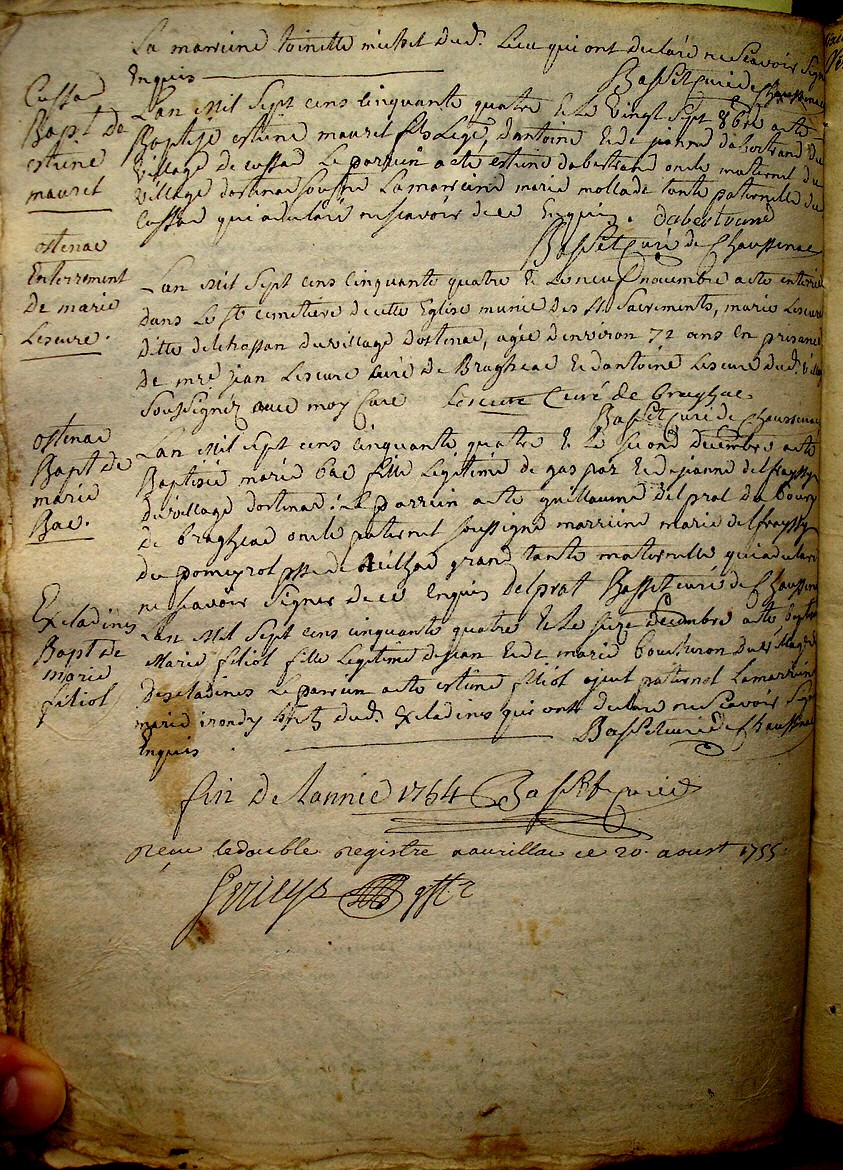 La marrine toinette michel dud. Lieu qui ont declaré ne scavoir signer
Enquis
Basset curé de Chaussenac
Cussac
Bapt de
estiene
mauret
Lan mil sept cens cinquante quatre & le vingt sept 8bre a este
Baptisé estiene mauret fils legé, dantoine & de jeanne dabertrand du
village de cussac Le parrein a este estiene dabertrand oncle maternel du
village dostenac soussigné La marrine marie mollade tante paternelle du
Cussac qui a declaré ne scavoir de ce Enquis. dabertrand
Basset Curé de Chaussenac
ostenac
Enterrement
De marie
Lescure.
Lan mil sept cens cinquante quatre & le neuf novembre a este enterrée
dans Le st cemetiere de cette Eglise munie des sts Sacrements, marie Lescure
ditte delchassan du village dostenac, agée denviron 72 ans En presance
de mre jean Lescure curé de Bragheac & dantoine Lescure dud. village
Soussignez avec moy Curé Lescure Curé de braghac
Basset Curé de Chaussenac
ostenac
Bapt de
marie
Bac.
Lan mil sept cens cinquante quatre & le second decembre a este
Baptisée marie bac fille Legitime de gaspar & de jeanne delfrayssy
du village dostenac: Le parrein a este guillaume delprat du bourg
de bragheac oncle paternel soussigné marrine marie delfrayssy
du pomeyrol psse de grand tante maternelle qui a declaré
ne scavoir signer de ce Enquis delprat Basset curé de Chaussenac
Excladines
Bapt de
marie
filiol
Lan mil sept cens cinquante quatre & le seize decembre a este Baptisée
Marie filiol fille Legitime de jean & de marie bouchiron du village
Desecladines Le parrein a este estiene filiol ayeul paternel La marrine
marie dud. Excladines qui ont declaré ne scavoir signer
Enquis
Basset curé de Chaussenac
fin de Lannée 1754 Basset curé
Reçu le double registre a aurillac ce 20 aoust 1755.
Gerieys gffr